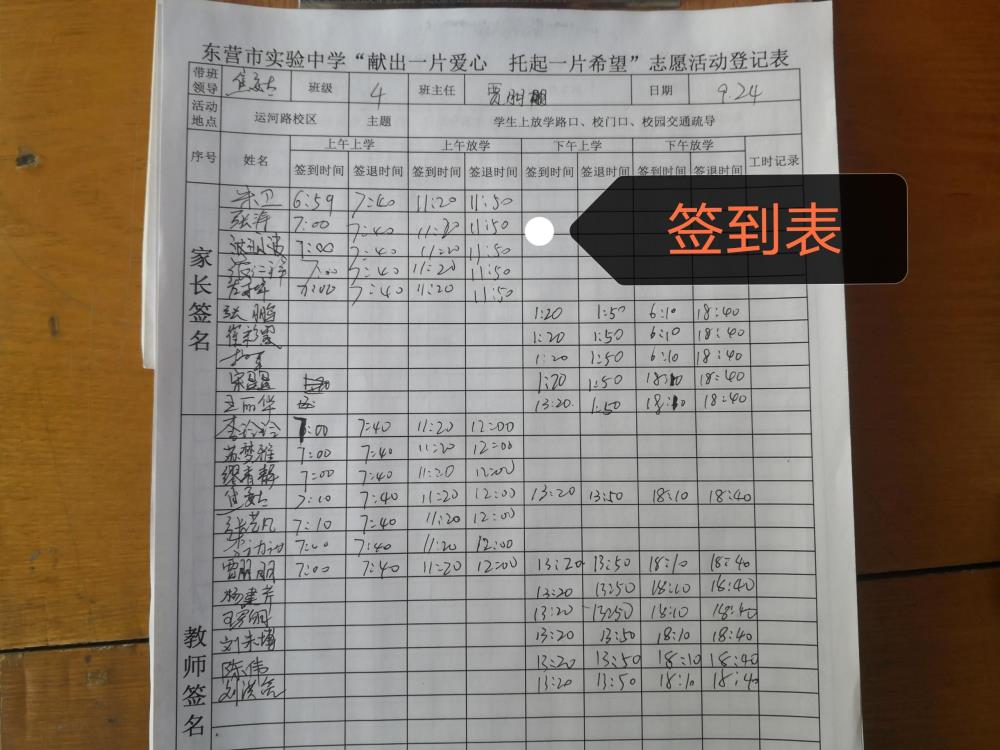 东营市实验中学“献出一片爱心 托起一片希望”志愿活动登记表
带班领导 班级 4 班主任 日期 9.24
活动地点 运河路校区 主题 学生上放学路口、校门口、校园交通疏导
序号 姓名 上午上学 上午放学 下午上学 下午放学 工时记录
签到时间 签退时间 签到时间 签退时间 签到时间 签退时间 签到时间 签退时间
签到表
家长签名
朱卫 6:59 7:40 11:20 11:50
张涛 7:00 7:40 11:20 11:50
7:00 7:40 11:20 11:50
7:00 7:40 11:20 11:50
7:00 7:40 11:20 11:50
张鹏 1:20 1:50 6:10 18:40
1:20 1:50 6:10 18:40
1:20 1:50 6:10 18:40
宋昷昷 1:20 1:50 18:10 18:40
王丽华 13:20 1:50 18:10 18:40
教师签名
李玲玲 7:00 7:40 11:20 12:00
苏梦雅 7:00 7:40 11:20 12:00
7:00 7:40 11:20 12:00
7:10 7:40 11:20 12:00 13:20 13:50 18:10 18:40
张艺凡 7:10 7:40 11:20 12:00
7:00 7:40 11:20 12:00
7:00 7:40 11:20 12:00 13:20 13:50 18:10 18:40
杨建芳 13:20 13:50 18:10 18:40
13:20 13:50 18:10 18:40
刘来博 13:20 13:50 18:10 18:40
陈伟 13:20 13:50 18:10 18:40
13:20 13:50 18:10 18:40